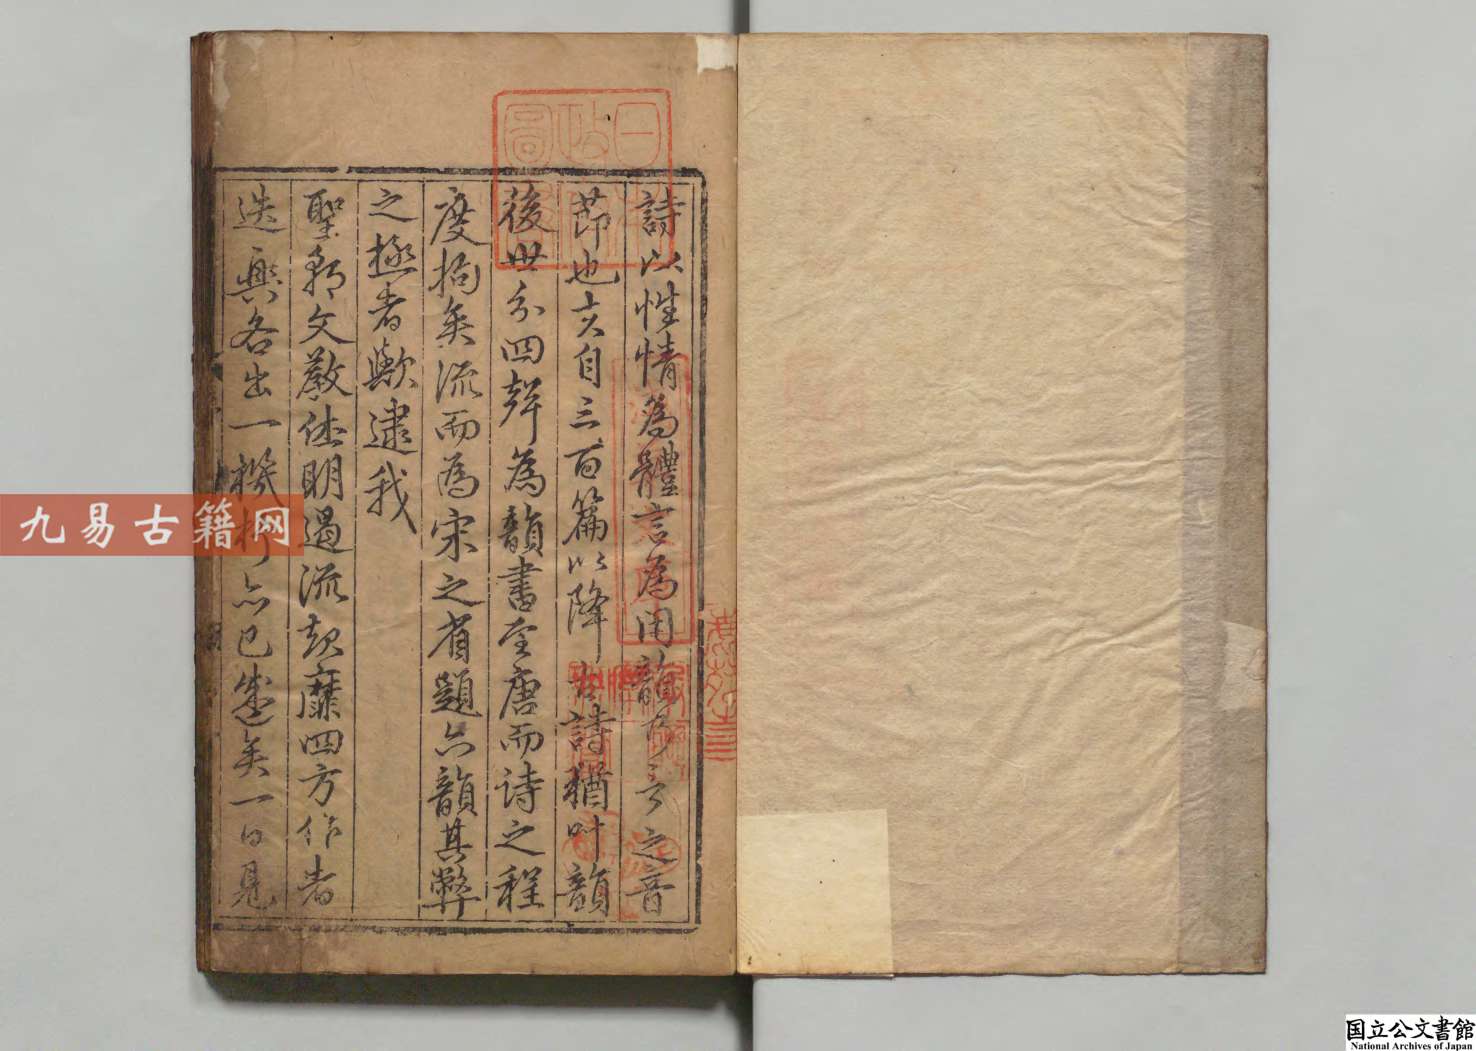 詩以性情為體言為用韻乃言之音
節也亥自三百篇以降古詩猶叶韻
後世分四聲為韻書至唐而詩之程
度拘矣流而為宋之省題六韻其弊
之極者歟逮我
聖朝文教休明過流
靡四方作者
迭興各出一機杼亦已盛矣一日見
九易古籍网
国立公文書館
National Archives of Japan